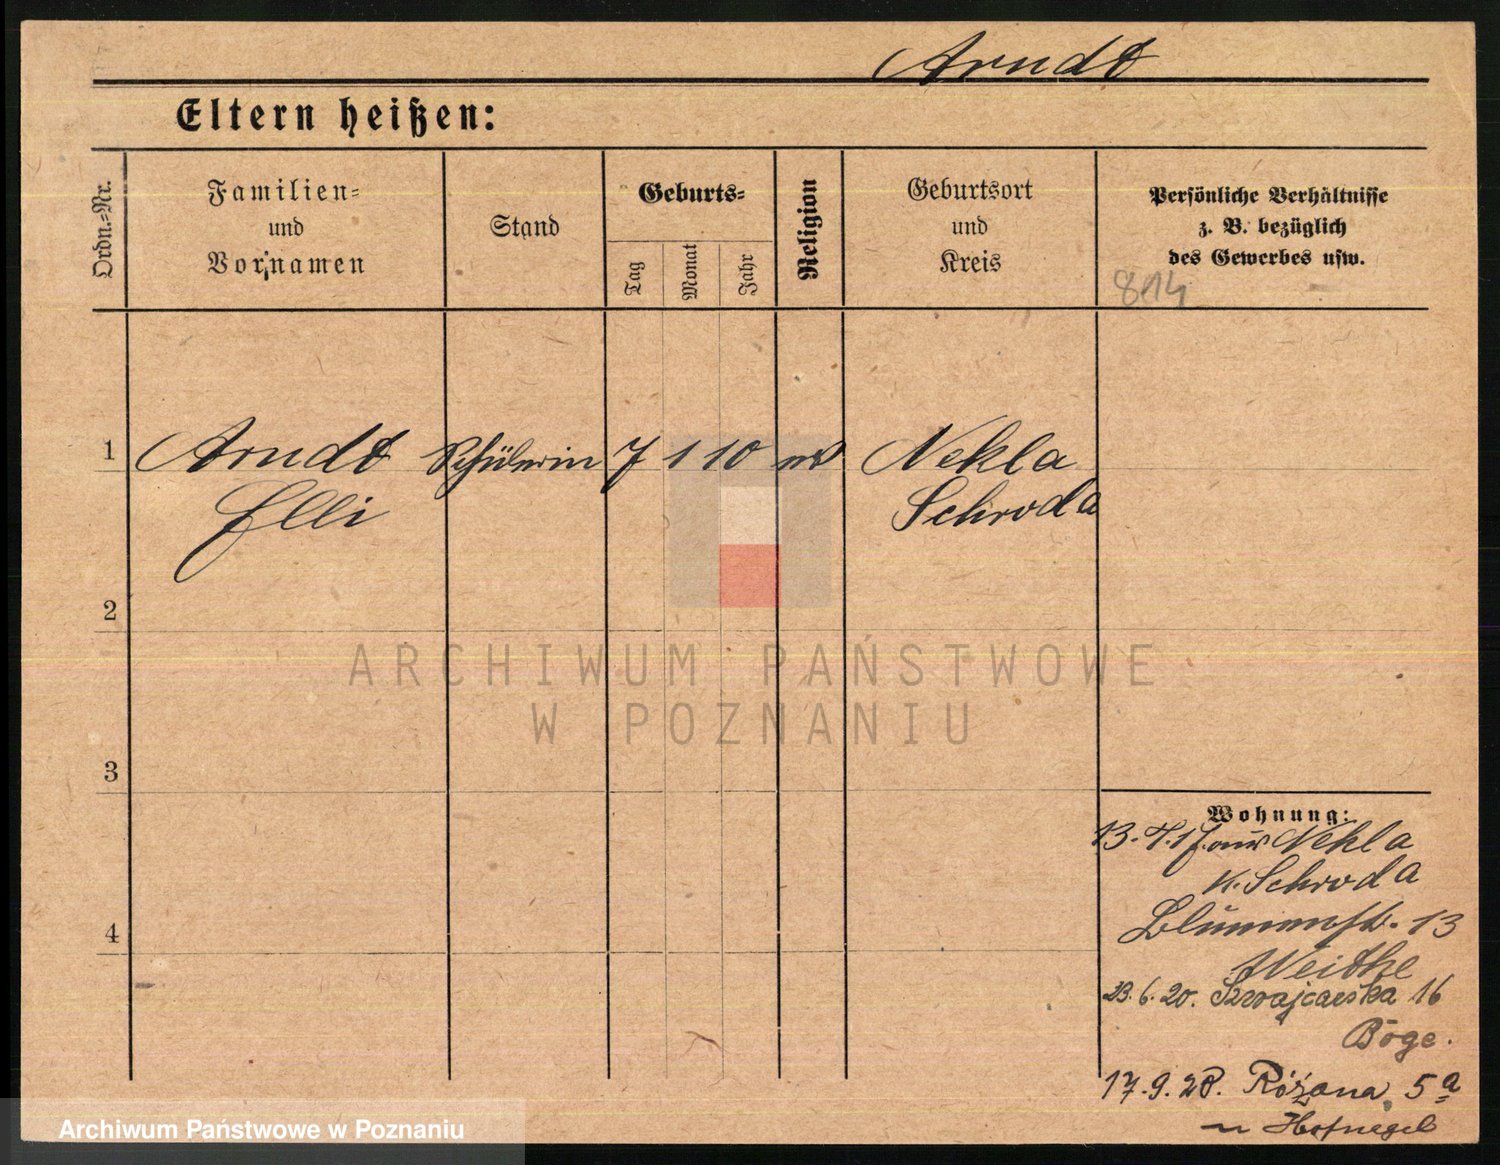 Arndt
Eltern heißen:
Ordn.=Nr.
Familien=
und
Vornamen
Stand
Geburts=
Tag
Monat
Jahr
Religion
Geburtsort
und
Kreis
Persönliche Verhältnisse
z. B. bezüglich
des Gewerbes usw.
814
1 Arndt Schülerin 7 1 10 ev Nekla
Elli Schroda
2
3
4
Wohnung:
13. 4. 17. aus Nekla
K. Schroda
Blumenstr. 13
Weithe
23. 6. 20. Szwajcarska 16
Böge.
17. 9. 28. Różana 5a
u
ARCHIWUM PAŃSTWOWE
W POZNANIU
Archiwum Państwowe w Poznaniu